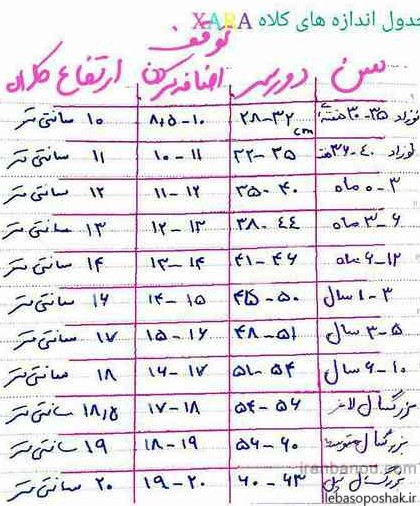 جدول اندازه های کلاه XARA
سن دور سر توقف اضافه کردن ارتفاع کلاه
نوزاد ۳۵-۳۰ هفته ۳۲-۲۸ cm ۱۰-۸٫۵ ۱۰ سانتی متر
نوزاد ۴۰-۳۶ هفته ۳۵-۳۲ ۱۱-۱۰ ۱۱ سانتی متر
۳-۰ ماه ۴۰-۳۵ ۱۲-۱۱ ۱۲ سانتی متر
۶-۳ ماه ۴۴-۳۸ ۱۳-۱۲ ۱۳ سانتی متر
۱۲-۶ ماه ۴۶-۴۱ ۱۴-۱۳ ۱۴ سانتی متر
۳-۱ سال ۵۰-۴۵ ۱۵-۱۴ ۱۶ سانتی متر
۵-۳ سال ۵۱-۴۸ ۱۶-۱۵ ۱۷ سانتی متر
۱۰-۶ سال ۵۴-۵۱ ۱۷-۱۶ ۱۸ سانتی متر
بزرگسال لاغر ۵۶-۵۴ ۱۸-۱۷ ۱۸٫۵ سانتی متر
بزرگسال متوسط ۶۰-۵۶ ۱۹-۱۸ ۱۹ سانتی متر
iranbanou.com
بزرگسال ۶۳-۶۰ ۲۰-۱۹ ۲۰ سانتی متر
lebasoposhak.ir